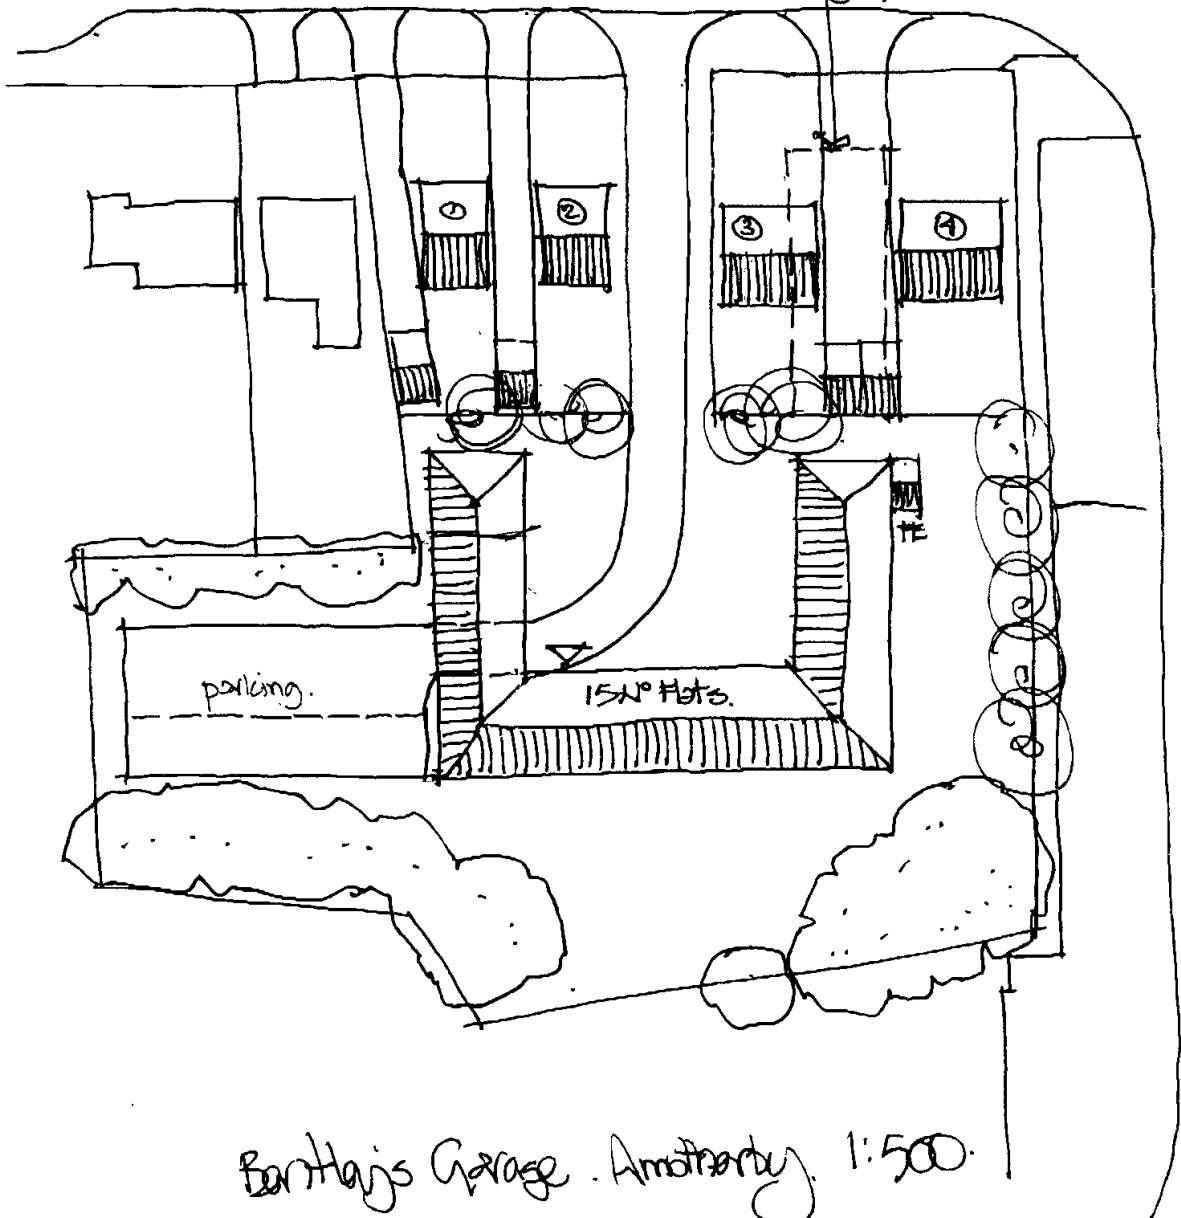 ① ②
③ ④
parking.
15 Nº Flats.
Garage. Amotherby. 1:500.